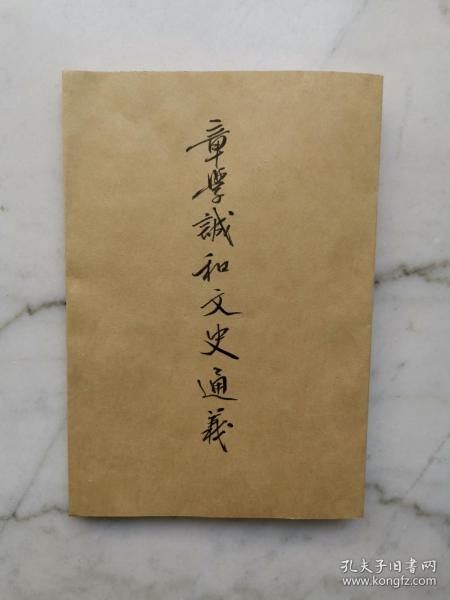 章學誠和文史通義
孔夫子旧书网
www.kongfz.com